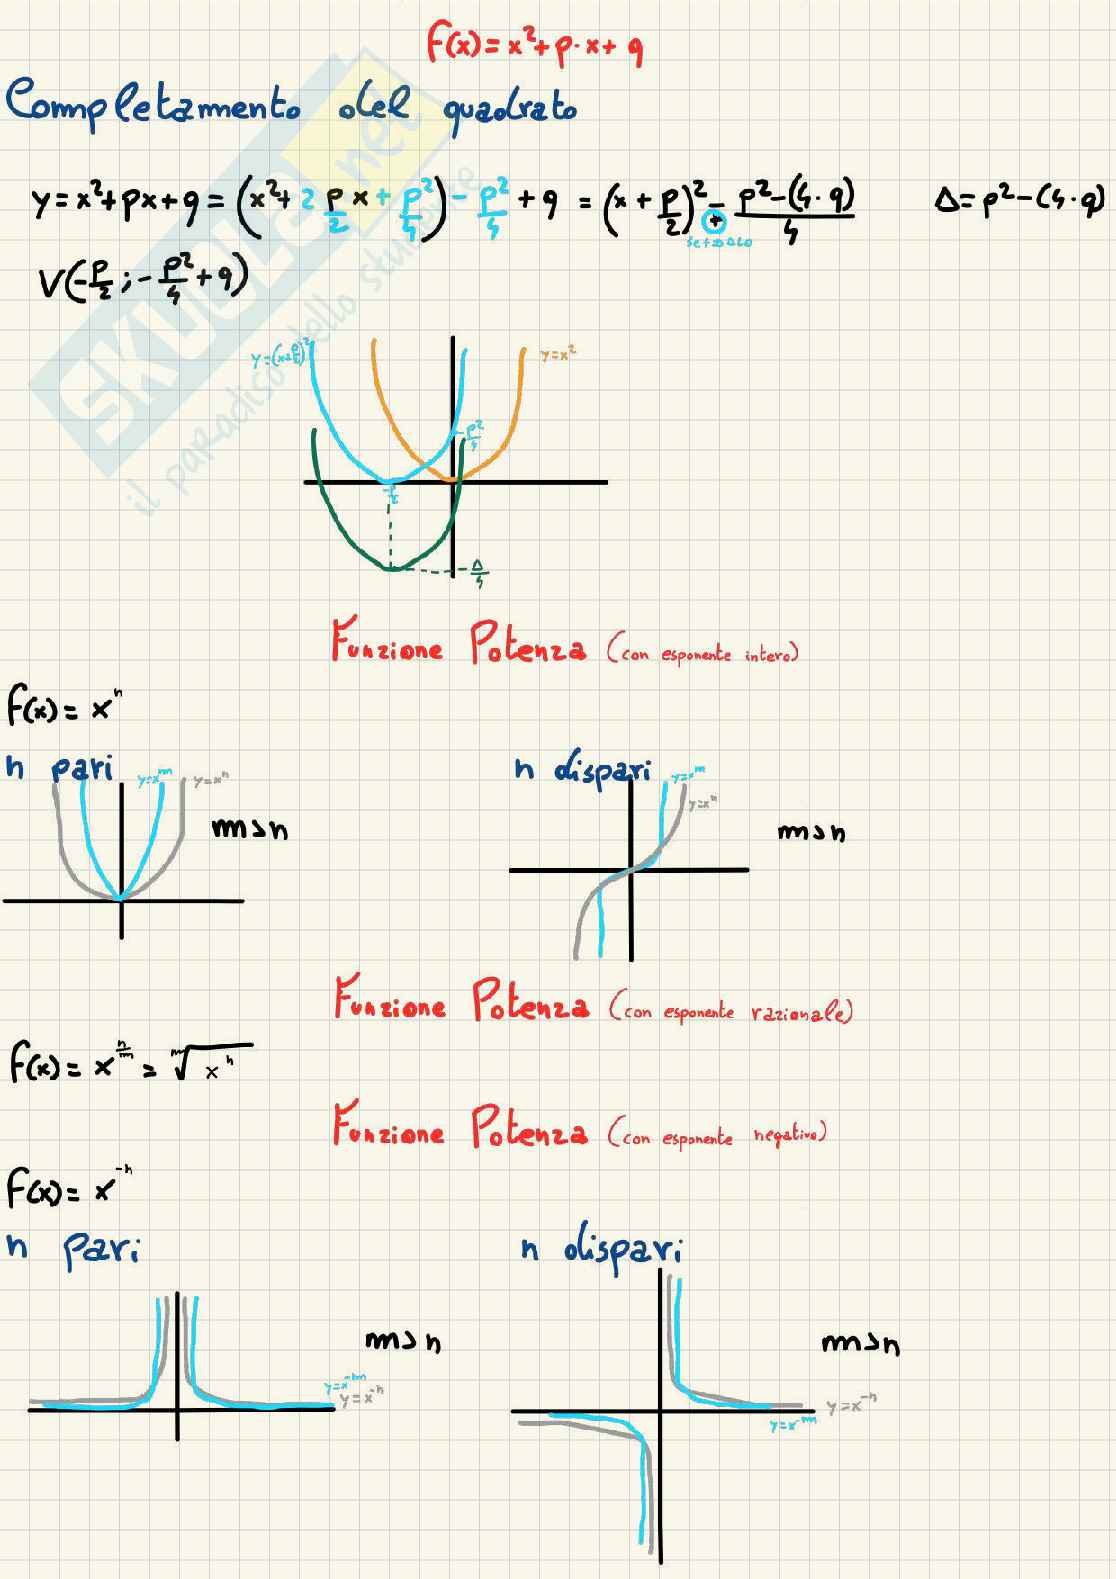 f(x) = x² + p · x + q
Completamento del quadrato
y = x² + px + q = (x² + 2 p/2 x + p²/4) - p²/4 + q = (x + p/2)² - p² - (4 · q)/4    Δ = p² - (4 · q)
+
se Δ<0
V(-p/2 ; -p²/4 + q)
y = (x + p/2)²
y = x²
p²/4
-p/2
-Δ/4
Funzione Potenza (con esponente intero)
f(x) = xⁿ
n pari
y = xᵐ
y = xⁿ
m > n
n dispari
y = xᵐ
y = xⁿ
m > n
Funzione Potenza (con esponente razionale)
f(x) = x^(n/m) = ᵐ√xⁿ
Funzione Potenza (con esponente negativo)
f(x) = x⁻ⁿ
n pari
m > n
y = x⁻ᵐ
y = x⁻ⁿ
n dispari
m > n
y = x⁻ⁿ
y = x⁻ᵐ
SKUOLA.net
il paradiso dello studente